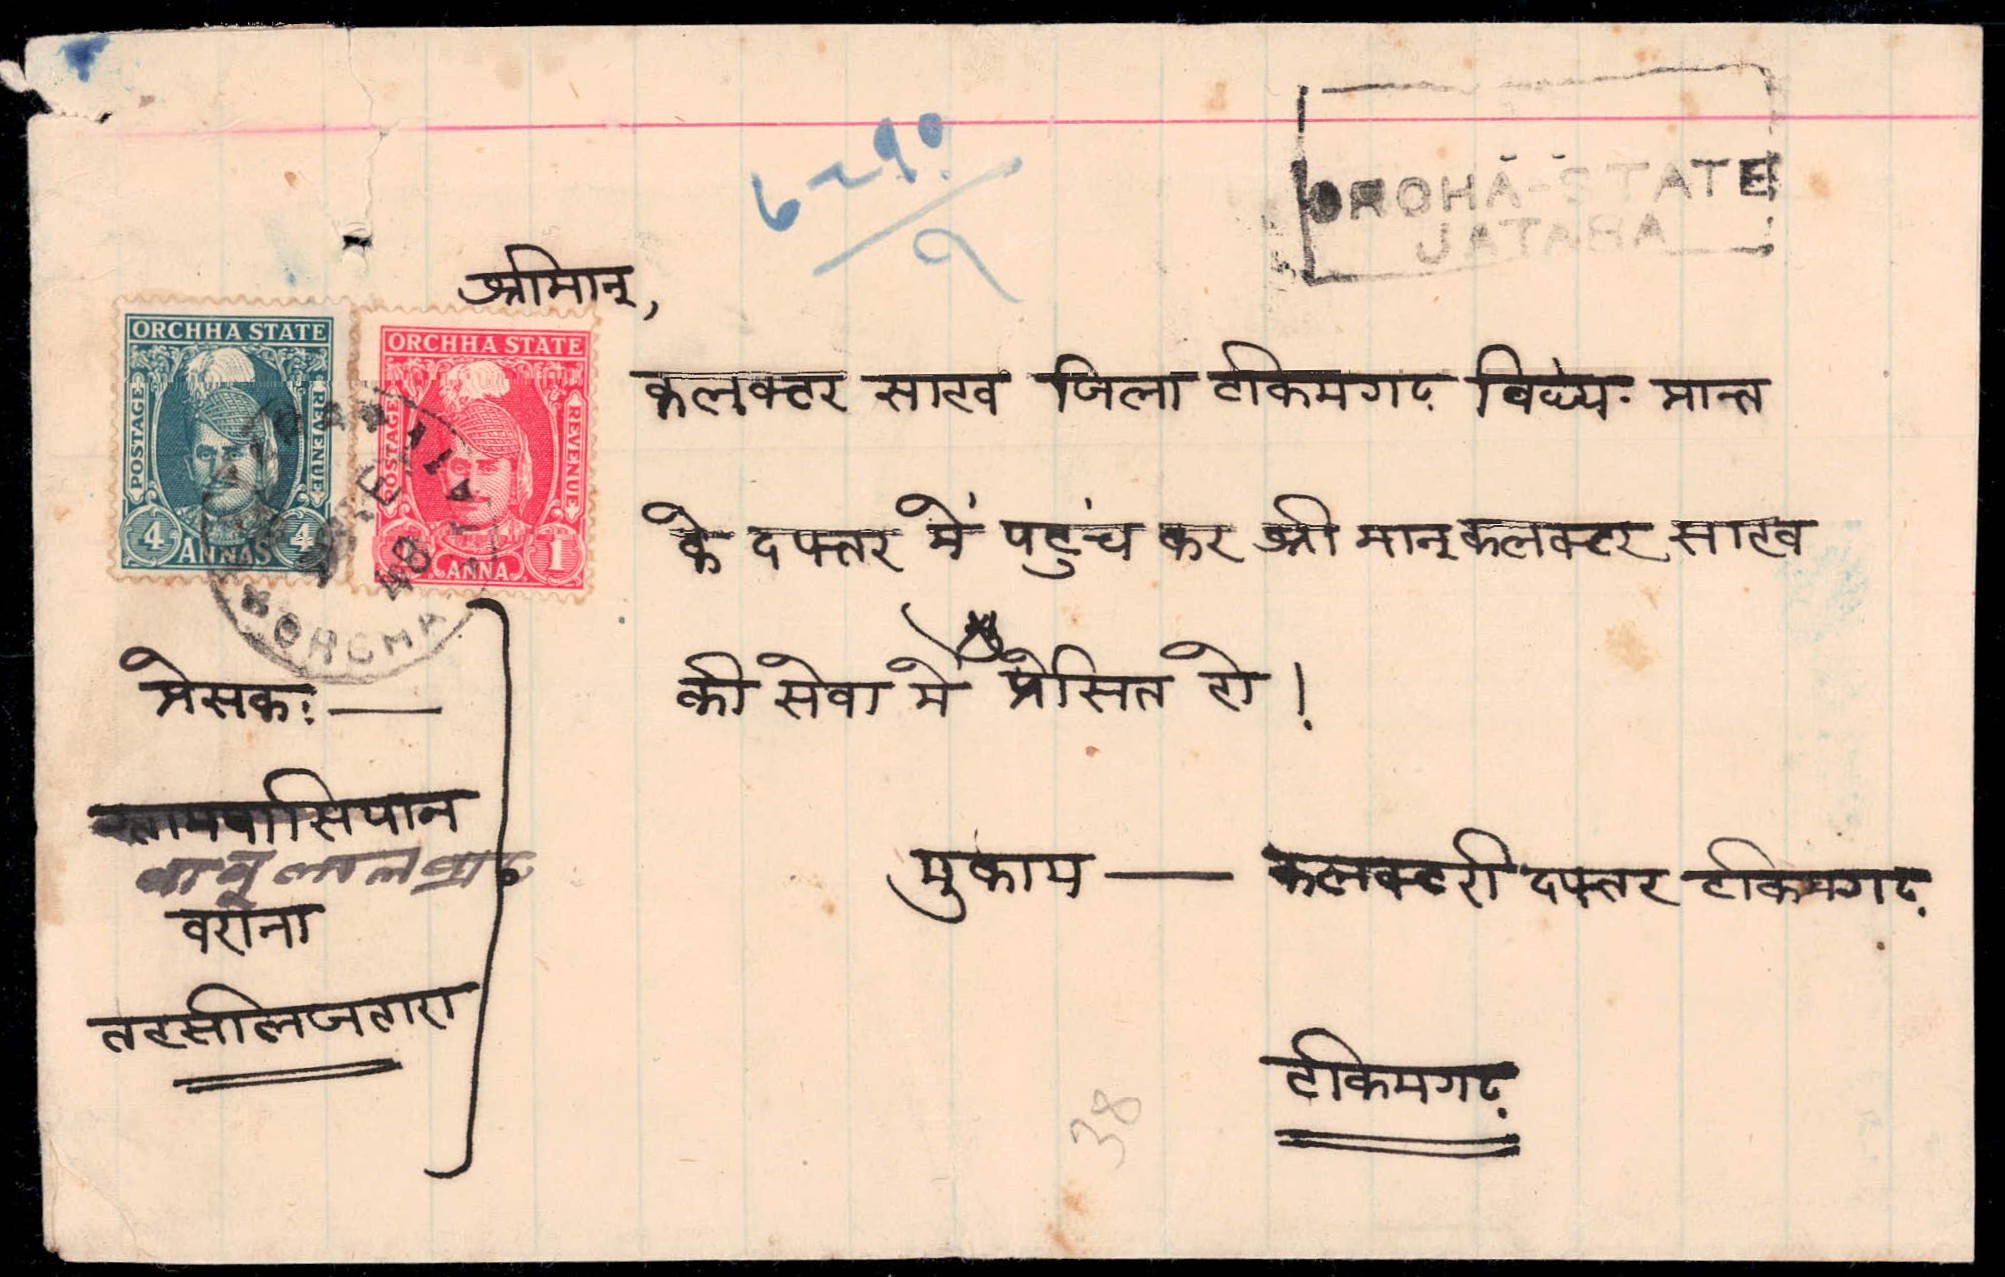 ६-१०
९
ORCHA-STATE
JATARA
श्रीमान्,
ORCHHA STATE
POSTAGE
REVENUE
4 ANNAS 4
ORCHHA STATE
POSTAGE
REVENUE
1 ANNA 1
कलक्टर साहब जिला टीकमगढ़ विंध्य. प्रान्त
के दफ्तर में पहुंच कर श्री मान् कलक्टर साहब
की सेवा मे प्रेसित हो।
48
ORCHHA
प्रेसक: —
बाबूलाल
बराना
तहसील जतारा
मुकाम — कलक्टरी दफ्तर टीकमगढ़
टीकमगढ़
38